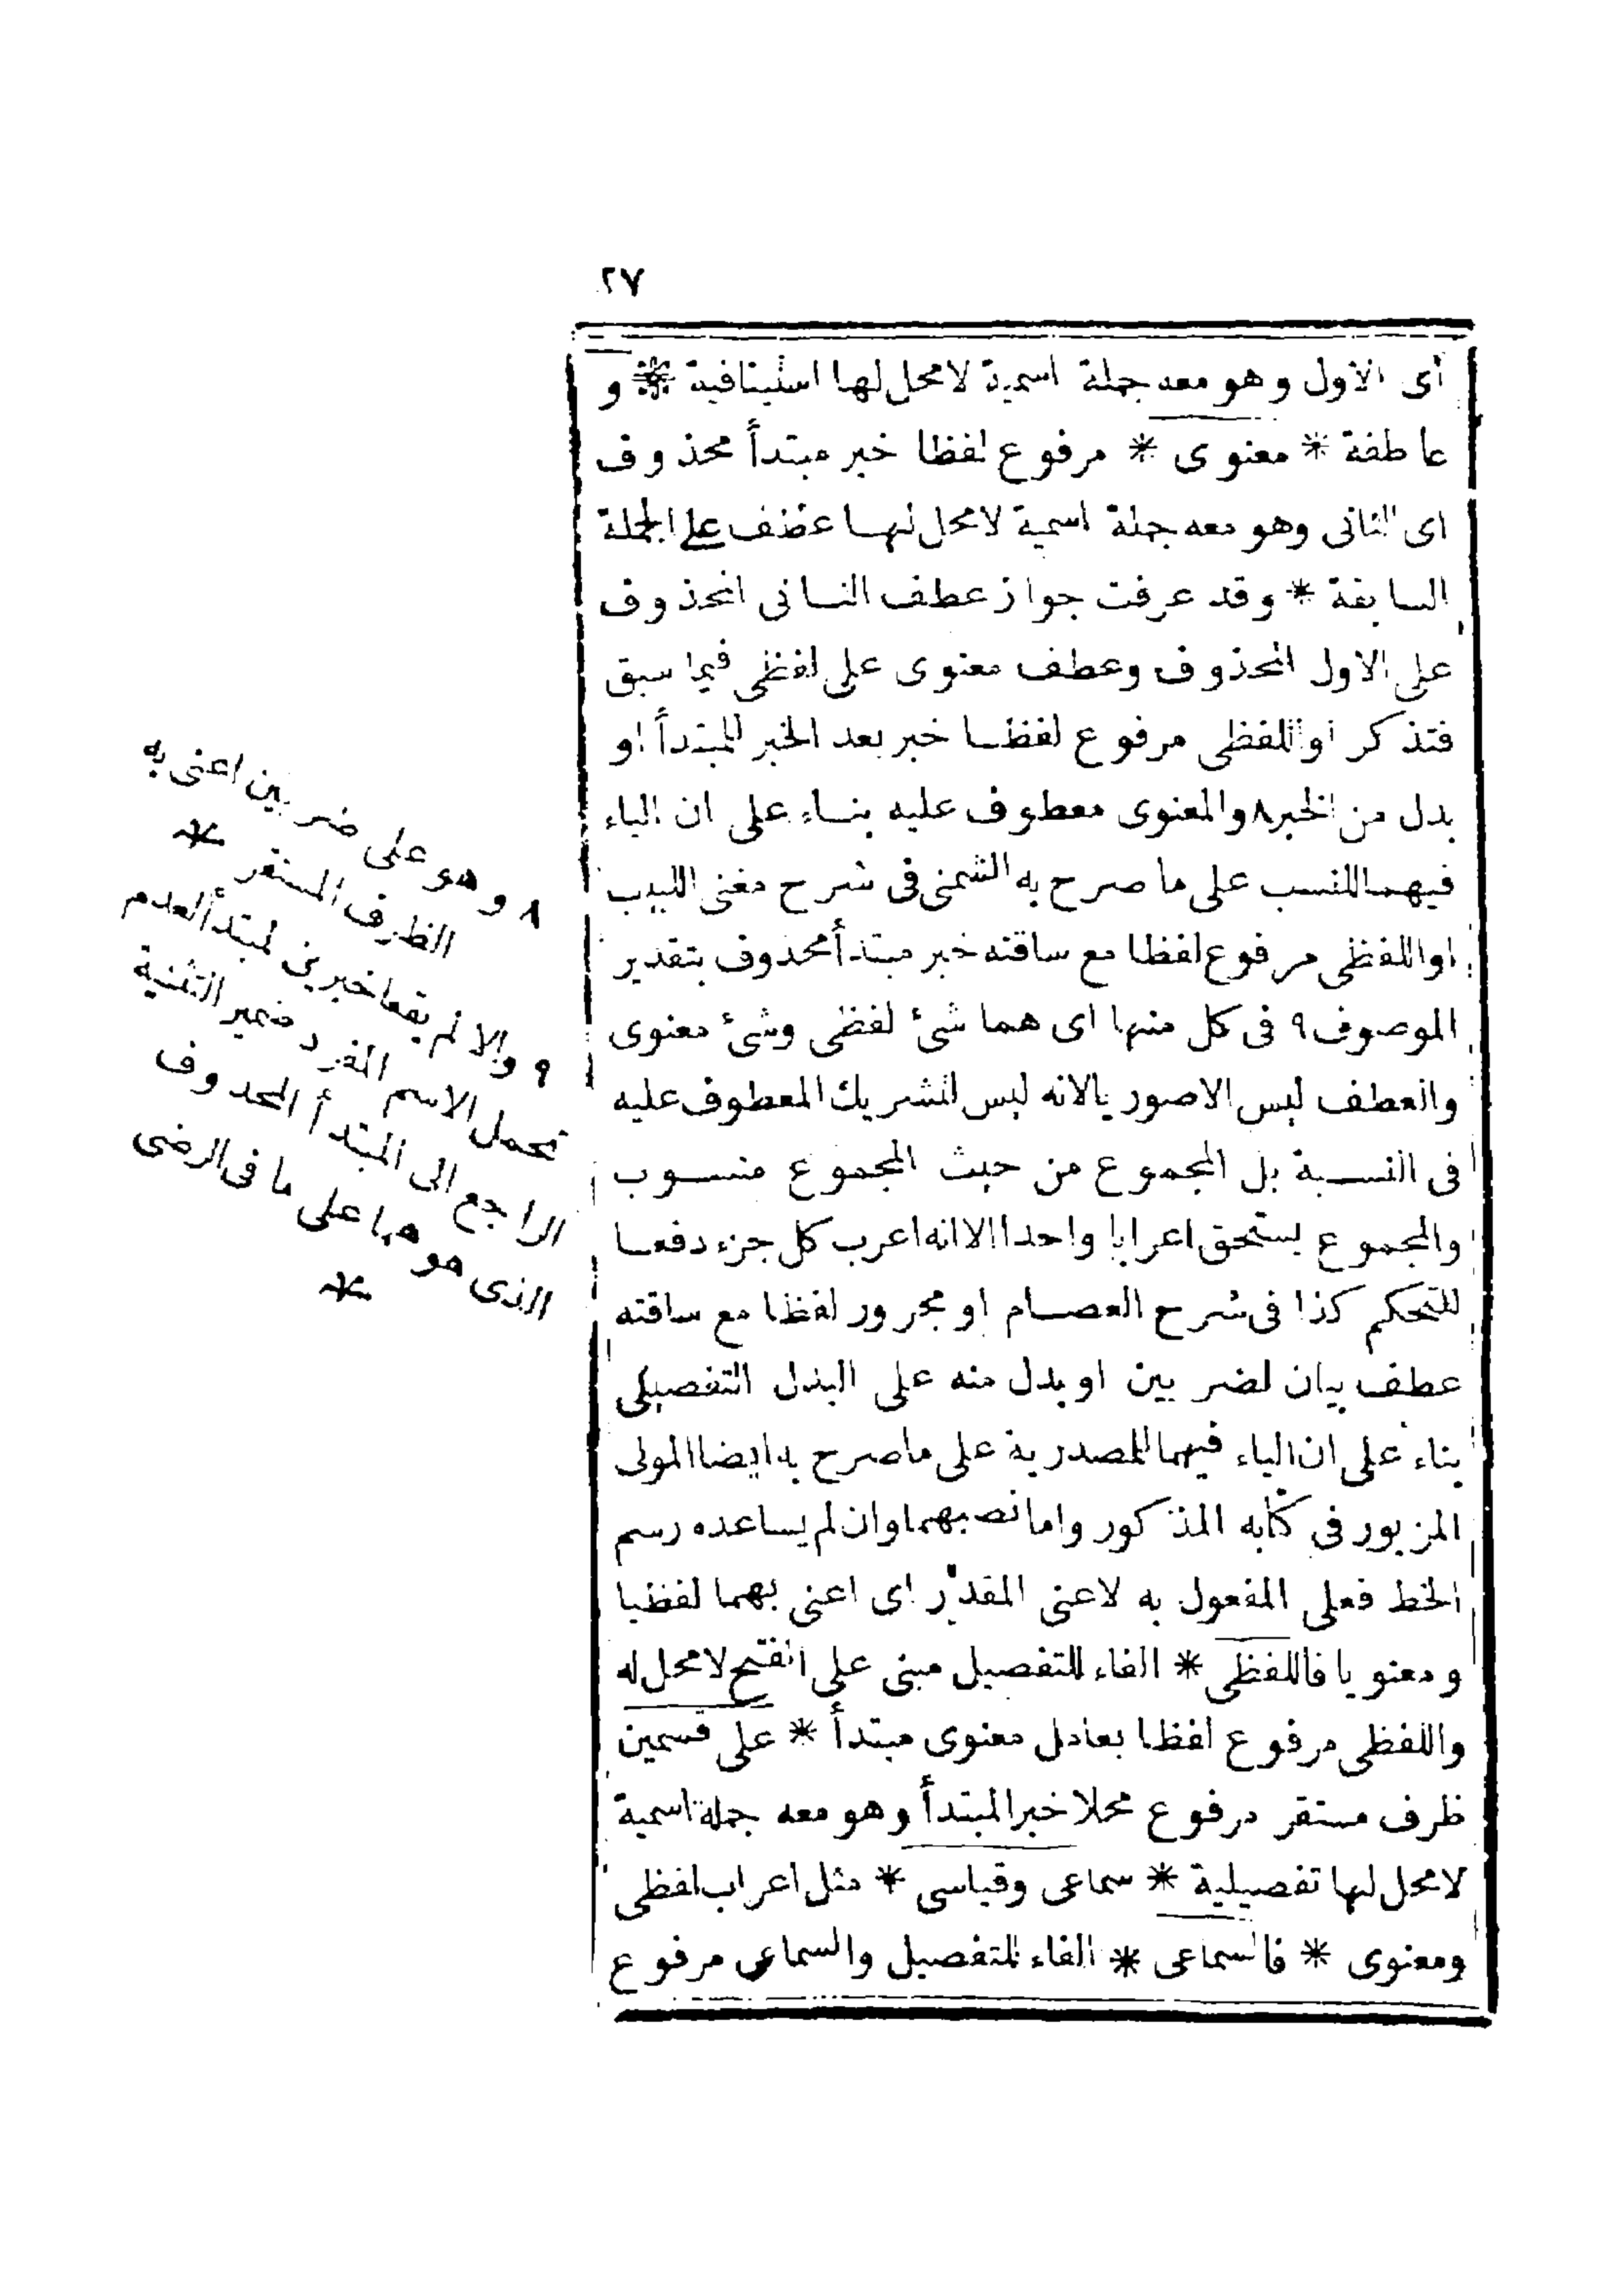 ٢٧
أى الاول وهو معه جملة اسمية لا محل لها استينافية * و
عاطفة * معنوى * مرفوع لفظا خبر مبتدأ محذوف
اى الثانى وهو معه جملة اسمية لا محل لها عطف على الجملة
السابقة * وقد عرفت جواز عطف الثانى المحذوف
على الاول المحذوف وعطف معنوى على لفظى فيما سبق
فتذكر او اللفظى مرفوع لفظا خبر بعد الخبر للمبتدأ او
بدل من الخبر ٨ والمعنوى معطوف عليه بناء على ان الياء
فيهما للنسب على ما صرح به الشمنى فى شرح مغنى اللبيب
او اللفظى مرفوع لفظا مع ساقته خبر مبتدأ محذوف بتقدير
الموصوف ٩ فى كل منها اى هما شئ لفظى وشئ معنوى
والعطف ليس الا صوريا لانه ليس لتشريك المعطوف عليه
فى النسبة بل المجموع من حيث المجموع منسوب
والمجموع يستحق اعرابا واحدا الا انه اعرب كل جزء دفعا
للتحكم كذا فى شرح العصام او مجرور لفظا مع ساقته
عطف بيان لضربين او بدل منه على البدل التفصيلى
بناء على ان الياء فيهما للمصدرية على ما صرح به ايضا المولى
المزبور فى كتابه المذكور واما نصبهما وان لم يساعده رسم
الخط فعلى المفعول به لاعنى المقدر اى اعنى بهما لفظيا
ومعنويا فاللفظى * الفاء للتفصيل مبنى على الفتح لا محل له
واللفظى مرفوع لفظا بعامل معنوى مبتدأ * على قسمين
ظرف مستقر مرفوع محلا خبر المبتدأ وهو معه جملة اسمية
لا محل لها تفصيلية * سماعى وقياسى * مثل اعراب لفظى
ومعنوى * فالسماعى * الفاء للتفصيل والسماعى مرفوع
٨ وهو على ضربين اعنى به
الظرف المستقر *
٩ والا لم يقعا خبرين لمبتدأ لعدم
تحمل الاسم المفرد ضمير التثنية
الراجع الى المبتدأ المحذوف
الذى هو هما على ما فى الرضى
*